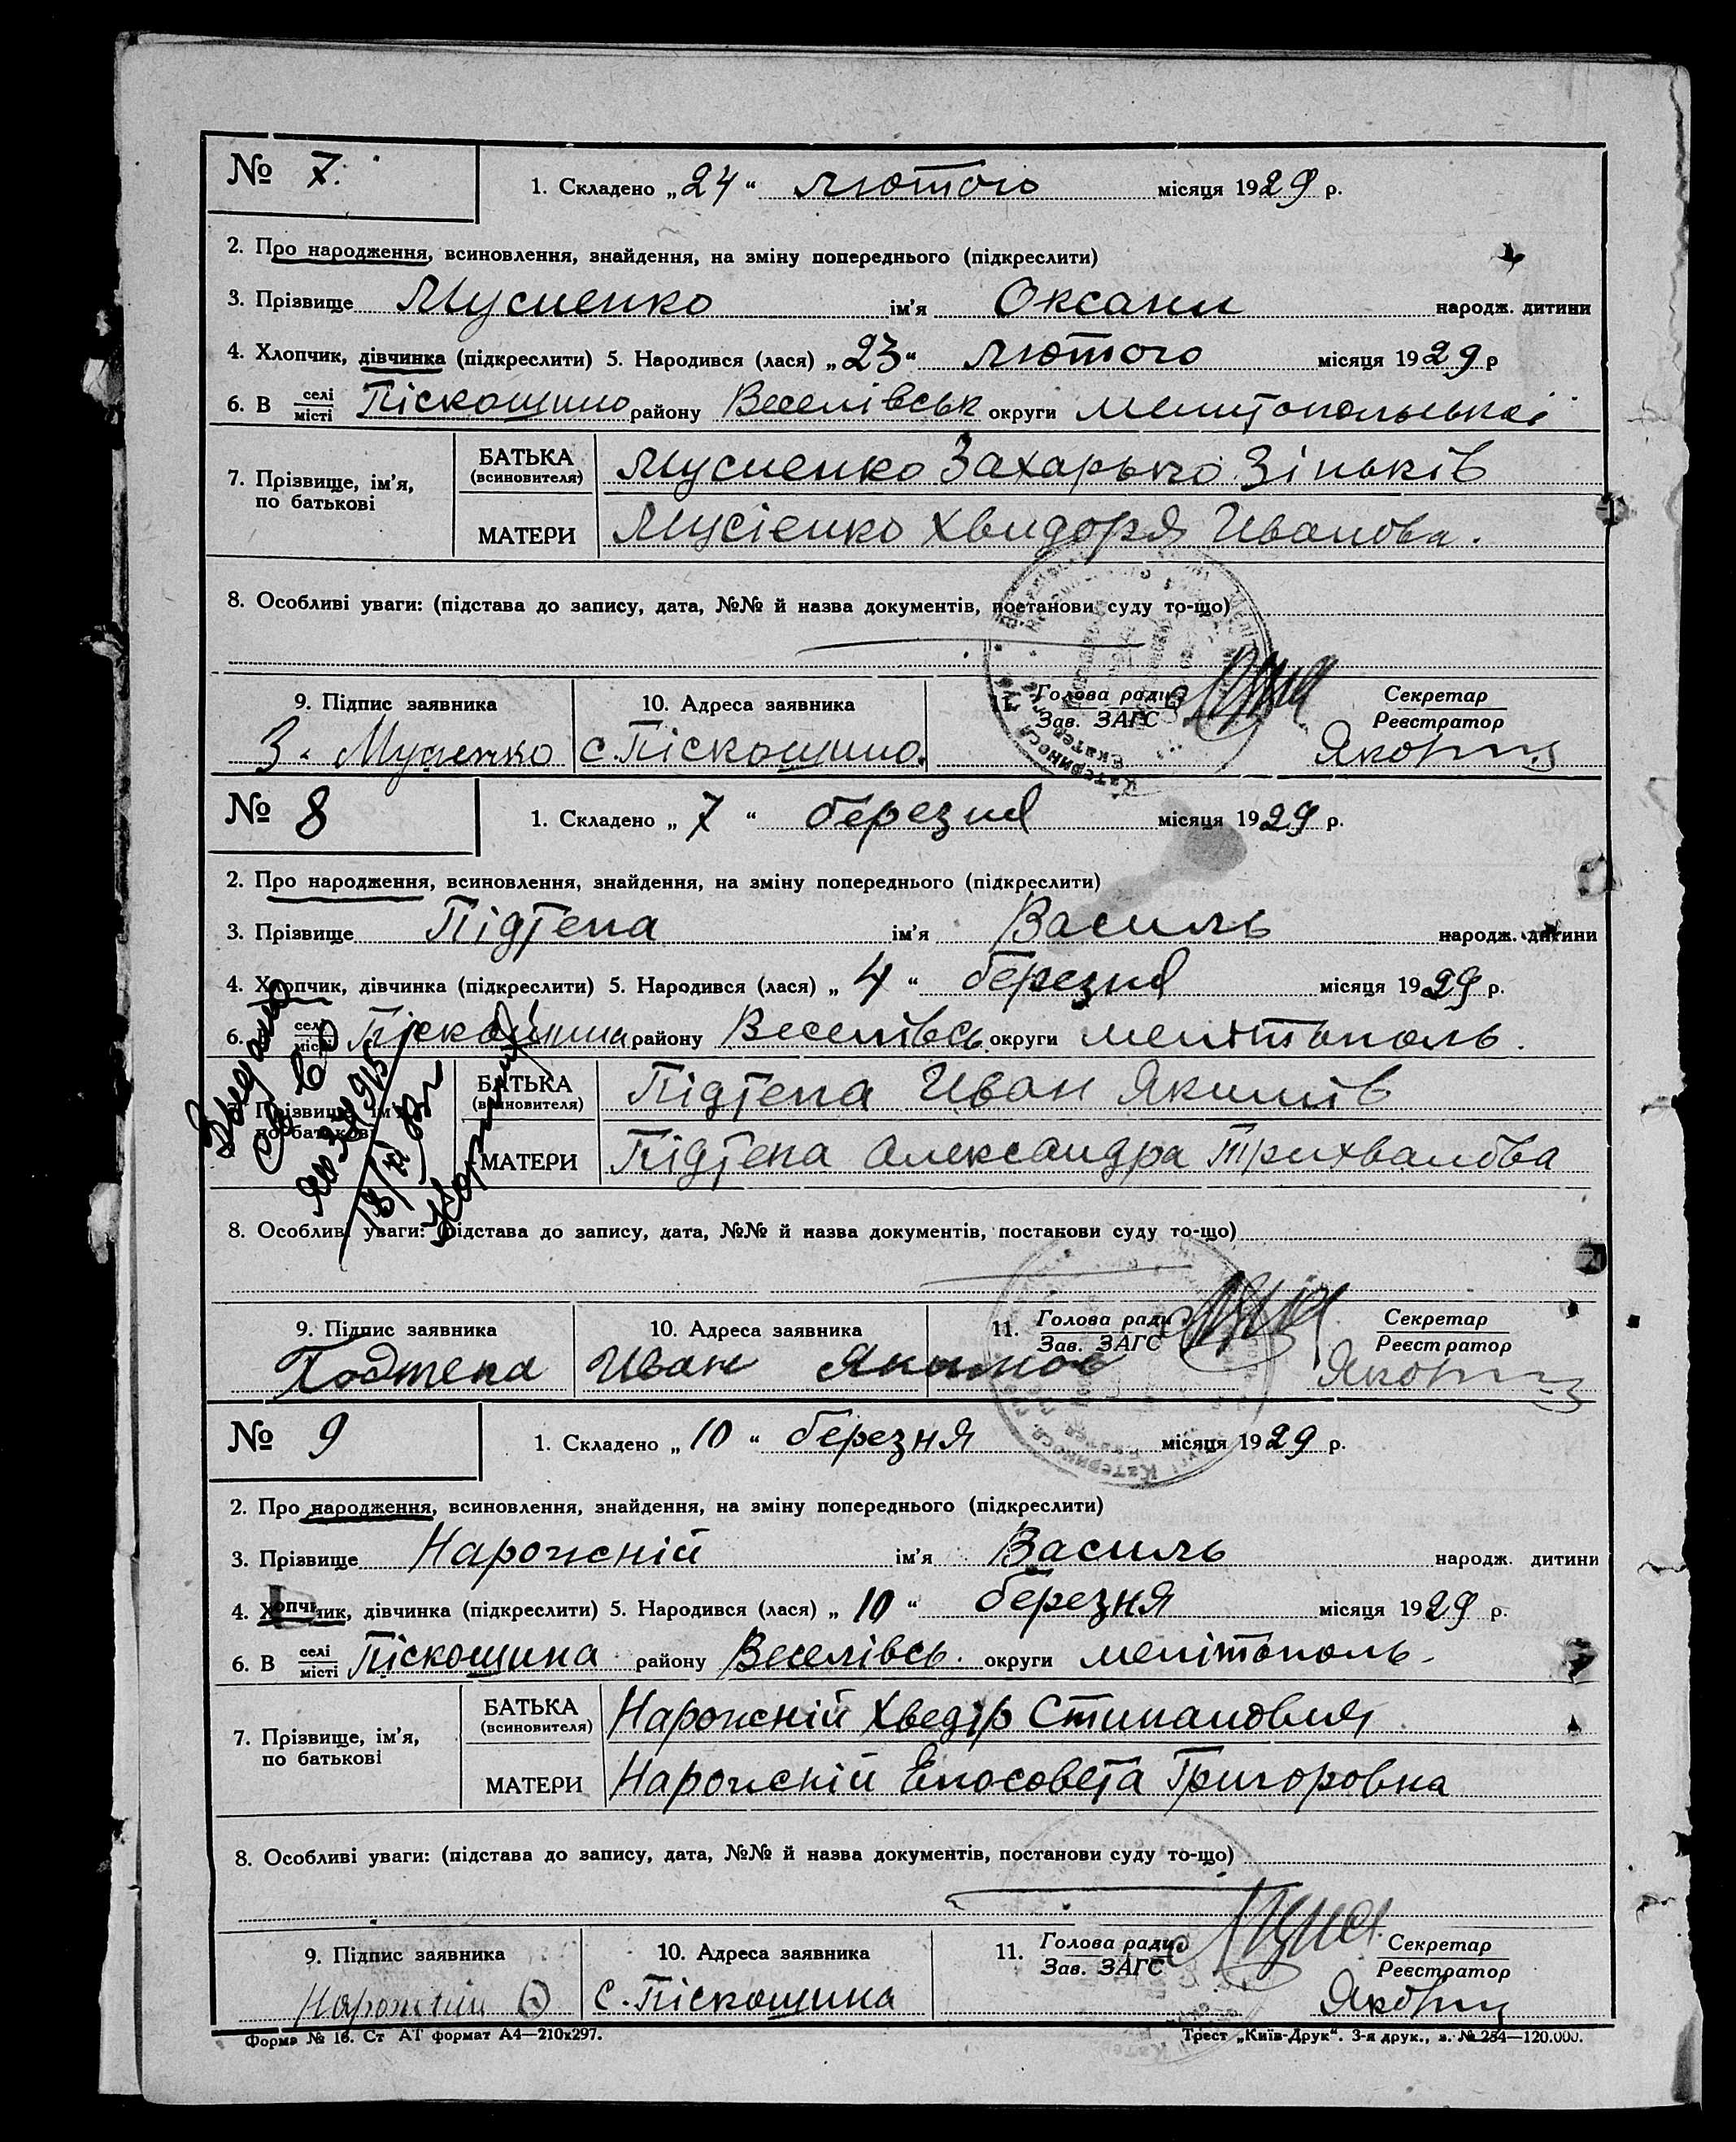 № 7.
1. Складено „24“ лютого місяця 1929 р.
2. Про народження, всиновлення, знайдення, на зміну попереднього (підкреслити)
3. Прізвище Мусиенко ім'я Оксани народж. дитини
4. Хлопчик, дівчинка (підкреслити) 5. Народився (лася) „23“ лютого місяця 1929 р
6. В селі місті Піскошино району Веселівськ округи
7. Прізвище, ім'я, по батькові
БАТЬКА (всиновителя) Мусиенко Захарько Зіньків
МАТЕРИ Мусіенко Хвидоря Иванова.
8. Особливі уваги: (підстава до запису, дата, №№ й назва документів, постанови суду то-що)
9. Підпис заявника 10. Адреса заявника 11. Голова ради Зав. ЗАГС Секретар Реєстратор
З. Мусиенко с. Піскошино.
№ 8
1. Складено „ 7 “ березня місяця 1929 р.
2. Про народження, всиновлення, знайдення, на зміну попереднього (підкреслити)
3. Прізвище Підтепа ім'я Василь народж. дитини
4. Хлопчик, дівчинка (підкреслити) 5. Народився (лася) „ 4 “ березня місяця 1929 р.
6. селі місті Піскошина району Веселівсь. округи мелітополь.
Прізвище, ім'я по батькові
БАТЬКА (всиновителя) Підтепа Иван Якимів
МАТЕРИ Підтепа Александра Трихванова
8. Особливі уваги: (підстава до запису, дата, №№ й назва документів, постанови суду то-що)
9. Підпис заявника 10. Адреса заявника 11. Голова ради Зав. ЗАГС Секретар Реєстратор
Подтепа Иван Якимов
№ 9
1. Складено „ 10 “ березня місяця 1929 р.
2. Про народження, всиновлення, знайдення, на зміну попереднього (підкреслити)
3. Прізвище Нарожній ім'я Василь народж. дитини
4. Хлопчик, дівчинка (підкреслити) 5. Народився (лася) „ 10 “ березня місяця 1929 р.
6. В селі місті Піскошина району Веселівсь. округи мелітополь.
7. Прізвище, ім'я, по батькові
БАТЬКА (всиновителя) Нарожній Хведір
МАТЕРИ Нарожній Григоровна
8. Особливі уваги: (підстава до запису, дата, №№ й назва документів, постанови суду то-що)
9. Підпис заявника 10. Адреса заявника 11. Голова ради Зав. ЗАГС Секретар Реєстратор
Нарожній с. Піскошина
Форма № 16. Ст АТ формат А4—210х297. Трест „Київ-Друк“. 3-я друк., з. № 254—120.000.